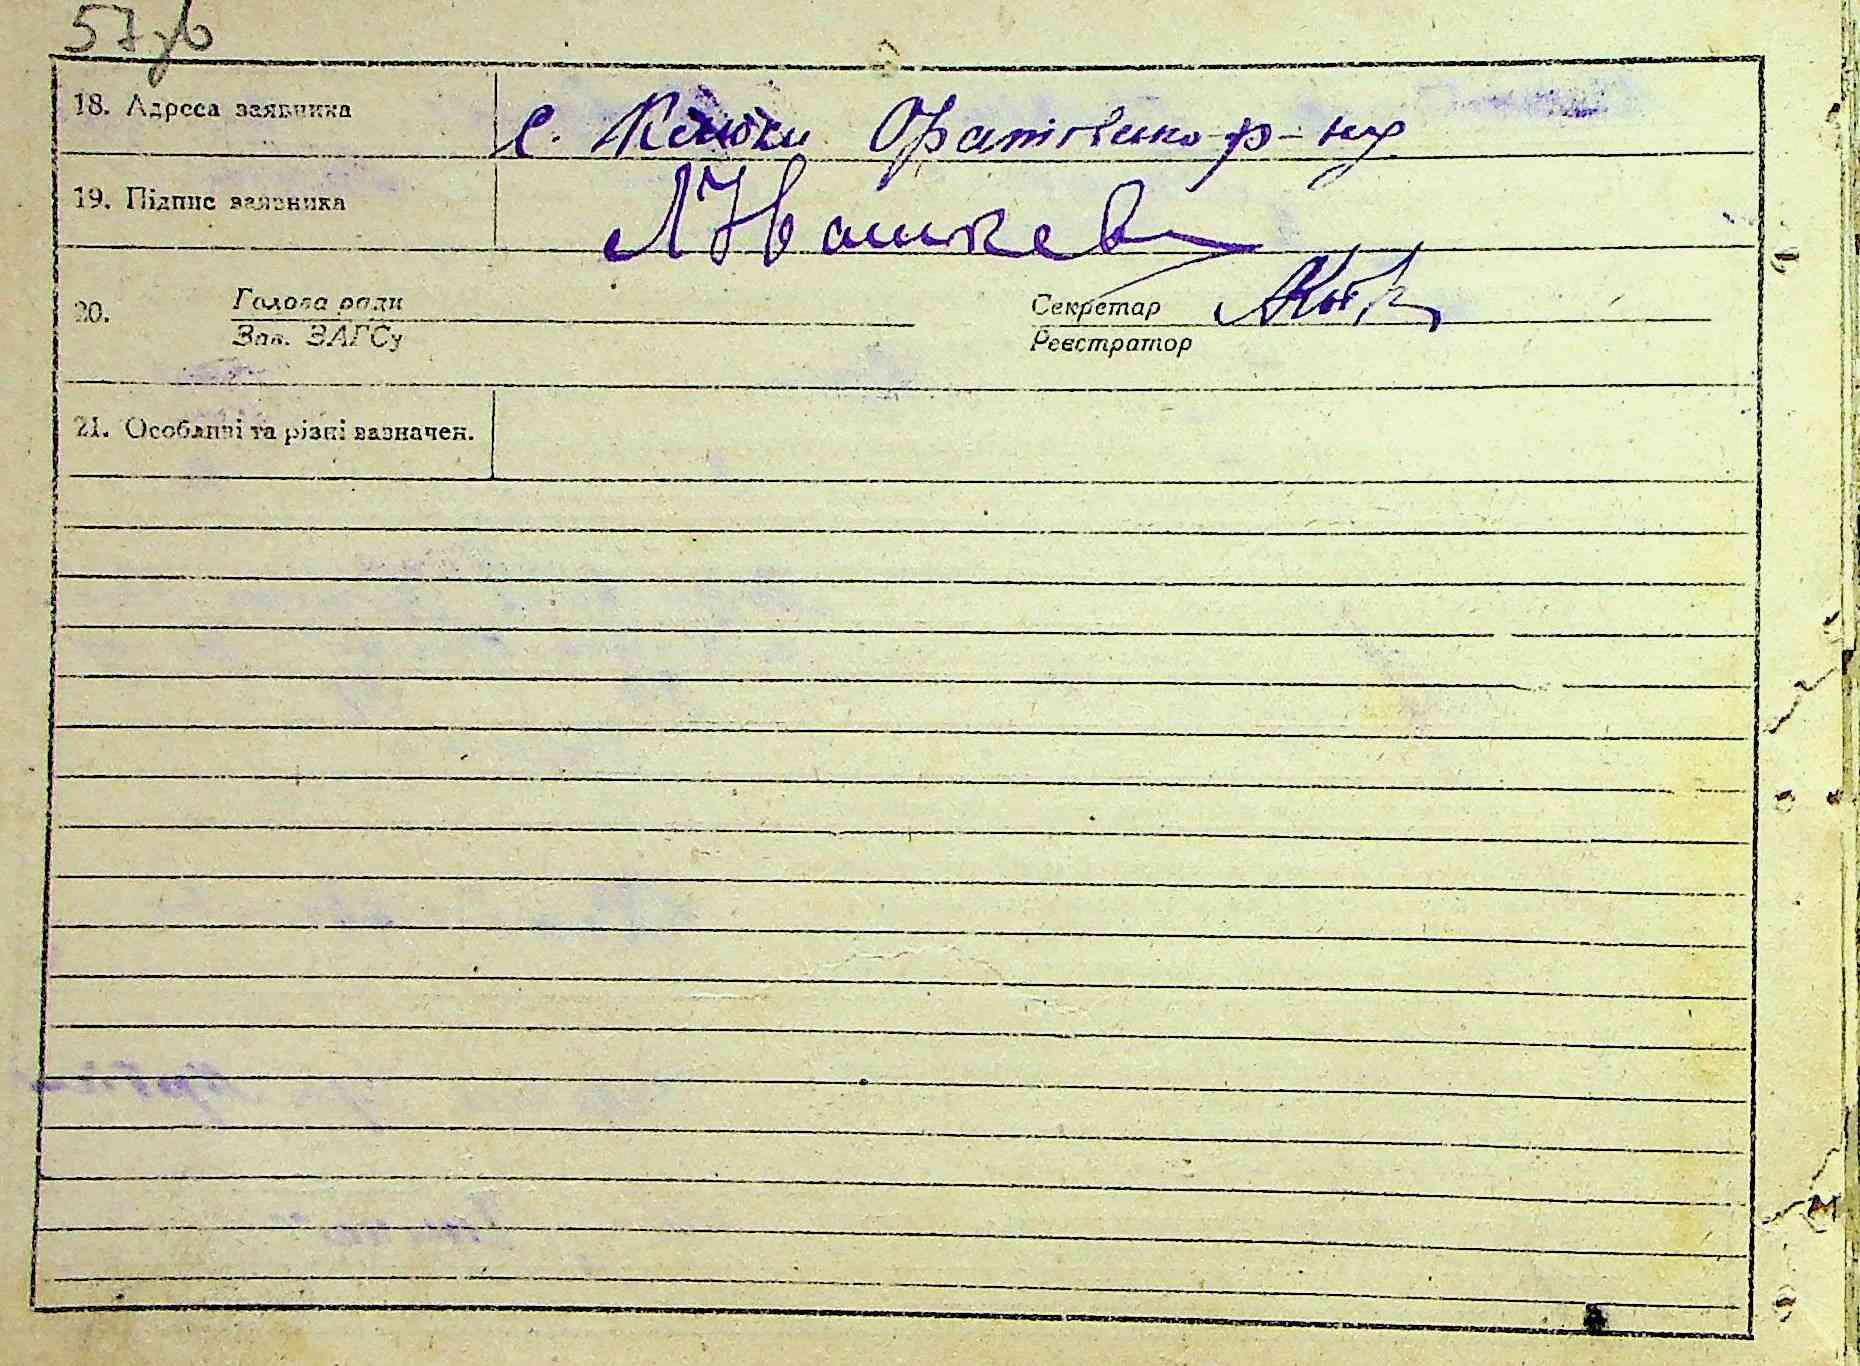 57зв
18. Адреса заявника с. Клюки Оратівсько р-ну
19. Підпис заявника Л Івашкев
20. Голова ради Секретар
Зав. ЗАГСу Реєстратор
21. Особливі та різні зазначен.